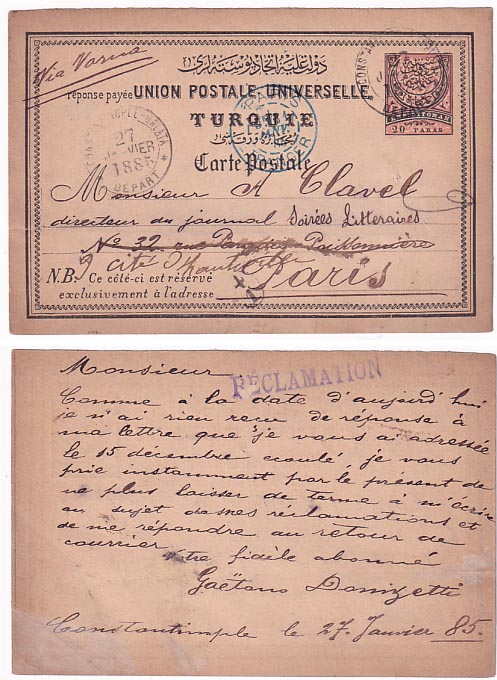 Via Varna
دولت عليه
réponse payée UNION POSTALE UNIVERSELLE
TURQUIE
Carte Postale
20 PARAS
CONSTANTINOPLE-GALATA
27
JANVIER
1885
DEPART
Monsieur A Clavel
directeur du journal Soirées Littéraires
N° 32 rue Paradis Poissonnière
9 cité d'Hauteville
Paris
N.B. Ce côté-ci est réservé
exclusivement à l'adresse
Monsieur
RÉCLAMATION
Comme à la date d'aujourd'hui
je n'ai rien reçu de réponse à
ma lettre que je vous ai adressée
le 15 décembre écoulé je vous
prie instamment par le présent de
ne plus laisser de terme à m'écrire
au sujet de mes réclamations et
de me répondre au retour de
courrier
Votre fidèle abonné
Gaëtano Donizetti
Constantinople le 27. Janvier 85.